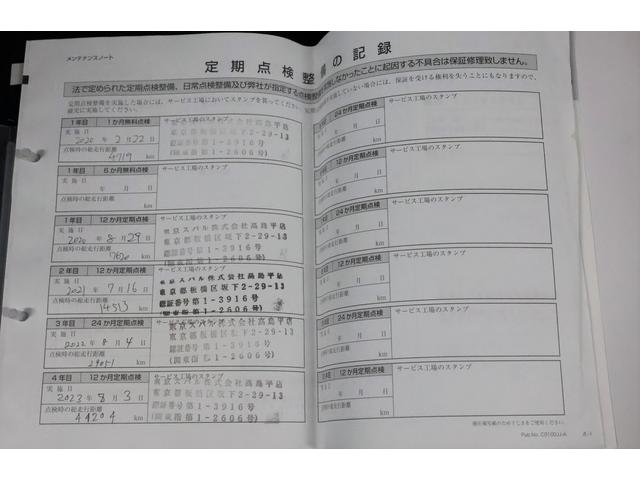 メンテナンスノート
定期点検整備の記録
法で定められた定期点検整備、日常点検整備及び弊社が指定する点検整備
しなかったことに起因する不具合は保証修理致しません。
定期点検整備を実施した場合には、サービス工場においてスタンプを貰ってください。
確実に実施してください。
していない場合には、保証を受ける権利を失うこともありますので、
1年目 1か月無料点検 サービス工場のスタンプ
実施日
2020年2月22日
点検時の総走行距離
4719 km
東京スバル株式会社高島平店
東京都板橋区坂下2-29-13
認証番号第1-3916号
(関東指第1-2606号)
1年目 6か月無料点検 サービス工場のスタンプ
実施日
年 月 日
点検時の総走行距離
km
1年目 12か月定期点検 サービス工場のスタンプ
実施日
2020年8月29日
点検時の総走行距離
km
東京スバル株式会社高島平店
東京都板橋区坂下2-29-13
認証番号第1-3916号
(関東指第1-2606号)
2年目 12か月定期点検 サービス工場のスタンプ
実施日
2021年7月16日
点検時の総走行距離
14513 km
東京スバル株式会社高島平店
東京都板橋区坂下2-29-13
認証番号第1-3916号
(関東指第1-2606号)
3年目 24か月定期点検 サービス工場のスタンプ
実施日
2022年8月4日
点検時の総走行距離
km
東京スバル株式会社高島平店
東京都板橋区坂下2-29-13
認証番号第1-3916号
(関東指第1-2606号)
4年目 12か月定期点検 サービス工場のスタンプ
実施日
2023年8月3日
点検時の総走行距離
44204 km
東京スバル株式会社高島平店
東京都板橋区坂下2-29-13
認証番号第1-3916号
(関東指第1-2606号)
24か月定期点検 サービス工場のスタンプ
年 月 日
km
12か月定期点検 サービス工場のスタンプ
年 月 日
km
24か月定期点検 サービス工場のスタンプ
年 月 日
km
12か月定期点検 サービス工場のスタンプ
年 月 日
km
24か月定期点検 サービス工場のスタンプ
年 月 日
km
12か月定期点検 サービス工場のスタンプ
年 月 日
km